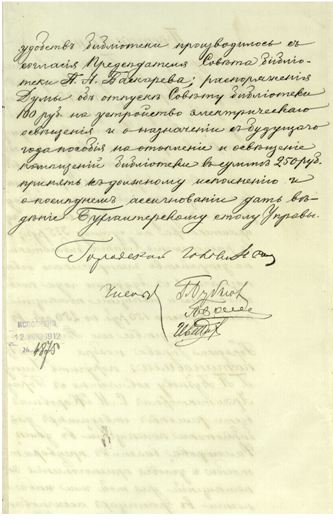 удобствъ библіотеки производилось съ
согласія Предсѣдателя Совѣта библіо-
теки П. А. распоряженія
Думы объ отпускѣ Совѣту библіотеки
100 руб. на устройство электрическаго
освѣщенія и о назначеніи съ будущаго
года пособія на отопленіе и освѣщеніе
помѣщеній библіотеки въ суммѣ 250 руб.
принять къ должному исполненію и
о послѣднемъ ассигнованіи дать въ
дѣніе Бухгалтерскому столу Управы.
Городской Голова
Члены
1912
№ 4875